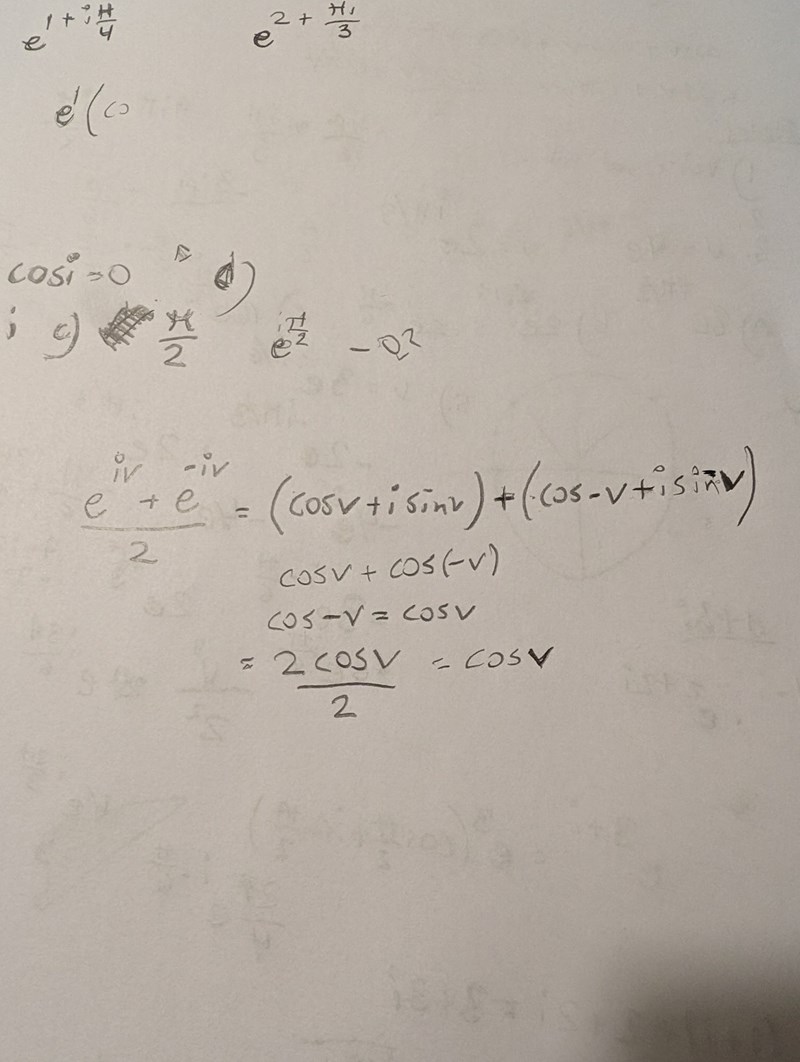 e^{1+iπ/4} e^{2+πi/3}
e^1(co
cosi=0 d)
i c) π/2 e^{iπ/2} -0?
(e^{iv} + e^{-iv})/2 = (cosv+i sinv)+(cos-v+i sin-v)
cosv + cos(-v)
cos-v = cosv
= 2cosv/2 = cosv